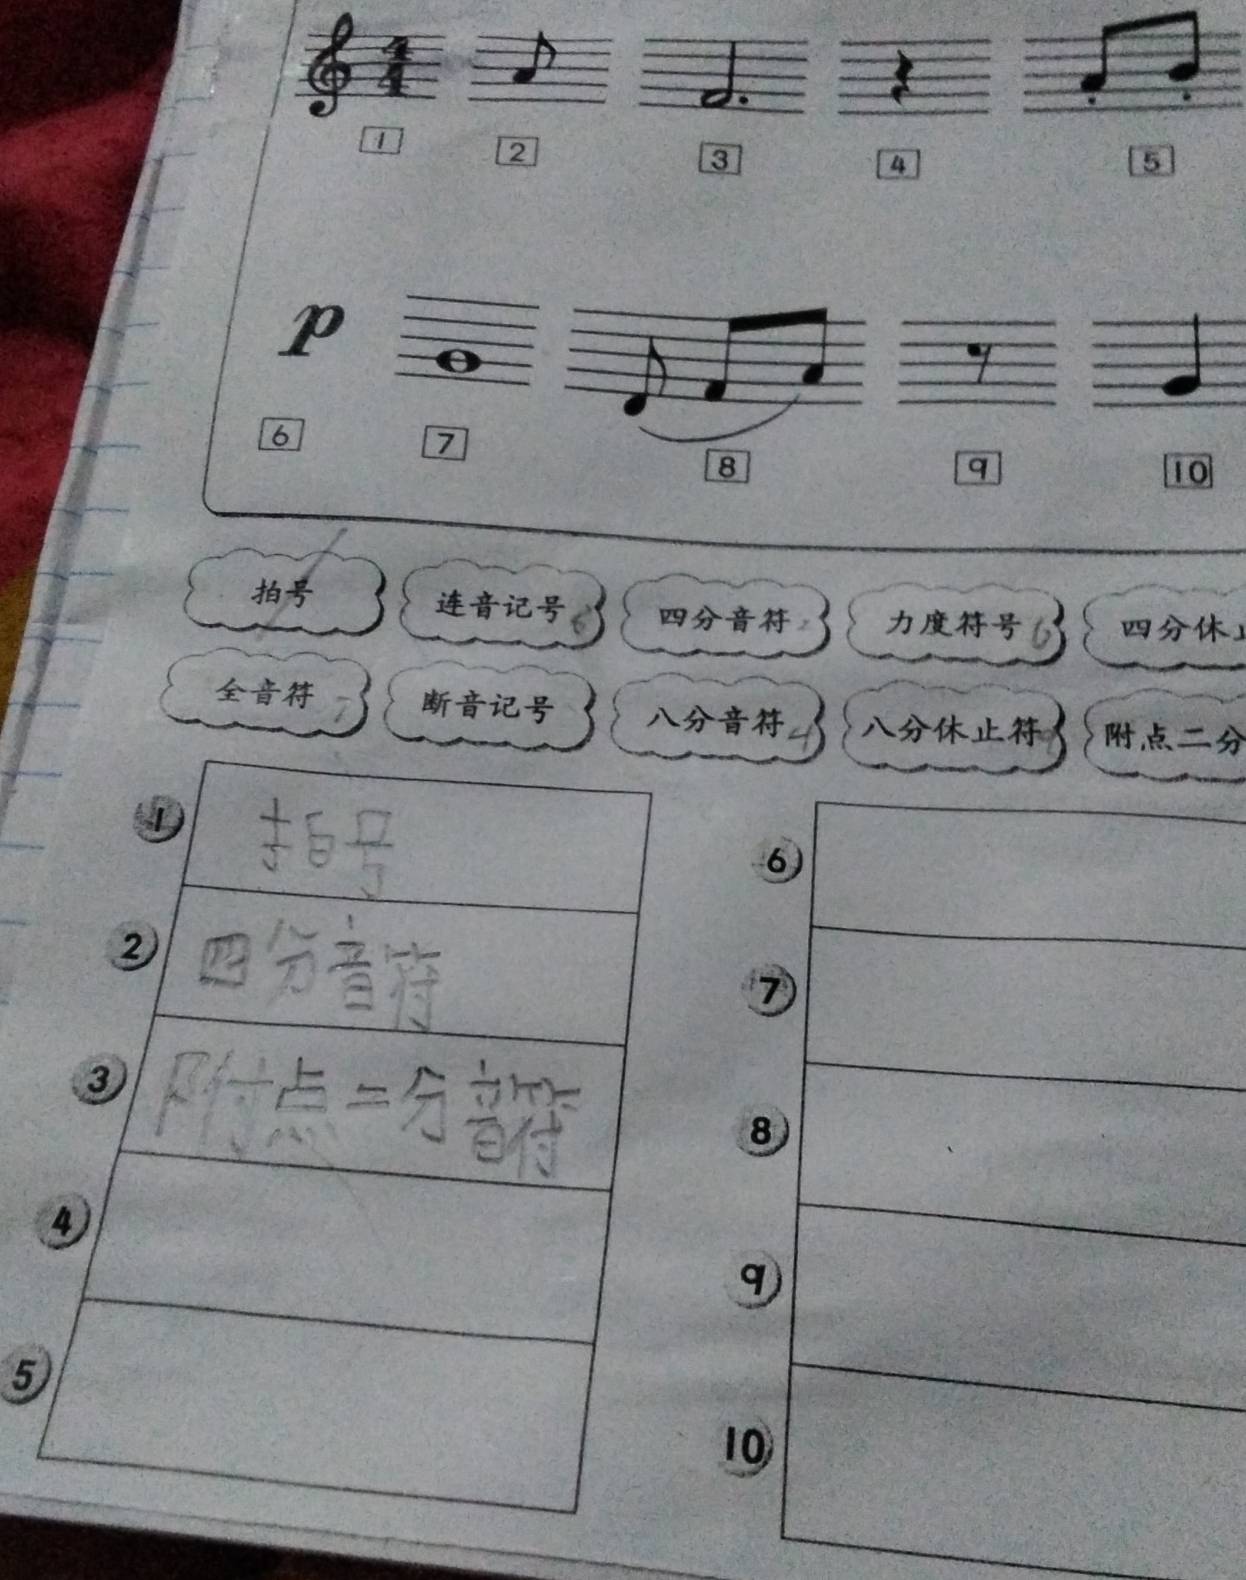 4 4
1 2 3 4 5
p
6 7 8 9 10
拍号 连音记号 四分音符 力度符号6 四分休
全音符7 断音记号 八分音符4 八分休止符 附点二分
1 拍号
2 四分音符
3 附点二分音符
4
5
6
7
8
9
10